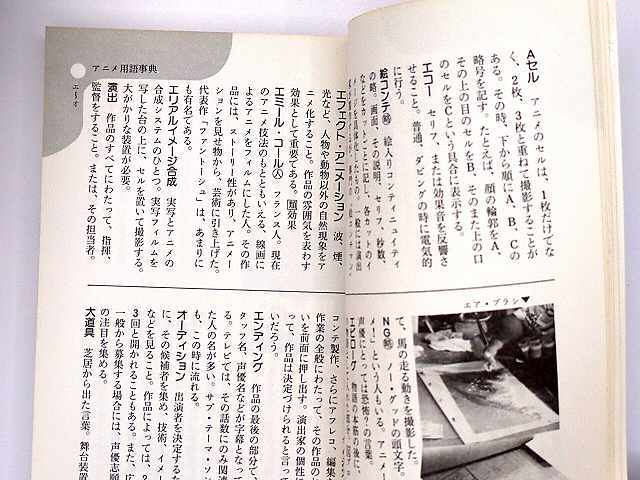 Aセル　アニメのセルは、1枚だけでな
く、2枚、3枚と重ねて撮影することが
ある。その時、下から順にA、B、Cの
略号を記す。たとえば、顔の輪郭をA、
その上の目のセルをB、そのまた上の口
のセルをCという具合に表示する。
エコー　セリフ、または効果音を反響さ
せること。普通、ダビングの時に電気的
に行う。
絵コンテ 略　絵入りコンティニュイティ
の略。画面、その説明、セリフ、秒数、
などをカットごとに記し、各カットのイ
メージを具体化したもの。一般には演出
エア・ブラシ▼
て、馬の走る動きを撮影した。
NG 略　ノー・グッドの頭文字。
メ！」という人もいる。アニメー
声優にとっては恐怖？の言葉。
エピローグ　物語の本筋の後に、
アニメ用語事典
エ｜オ
エフェクト・アニメーション　波、煙、
光など、人物や動物以外の自然現象をア
ニメ化すること。作品の雰囲気を表わす
効果として重要である。類効果
エミール・コール 人　フランス人。現在
のアニメ技法のもとともいえる、線画に
よるアニメをフィルムにした人。その作
品には、ストーリー性があり、アニメー
ションを見せ物から、芸術に引き上げた。
代表作「ファントーシュ」は、あまりに
も有名である。
エリアルイメージ合成　実写とアニメの
合成システムのひとつ。実写フィルムを
写した台の上に、セルを置いて撮影する。
大がかりな装置が必要。
演出　作品のすべてにわたって、指揮、
監督をすること。または、その担当者。
コンテ製作、さらにアフレコ、編集
作業の全般にわたって、その作品の
いを前面に押し出す。演出家の個性に
って、作品は決定づけられると言って
いだろう。
エンディング　作品の最後の部分で、
タッフ名、声優名などが字幕となって
る。テレビでは、その話数にのみ関連
た人の名が多い。サブ・テーマ・ソン
も、この時に流れる。
オーディション　出演者を決定するた
に、その候補者を集め、技術、イメー
などを見ること。作品によっては、2
3回と開かれることもある。また、広
一般から募集する場合には、声優志願
の注目を集める。
大道具　芝居から出た言葉。舞台装置